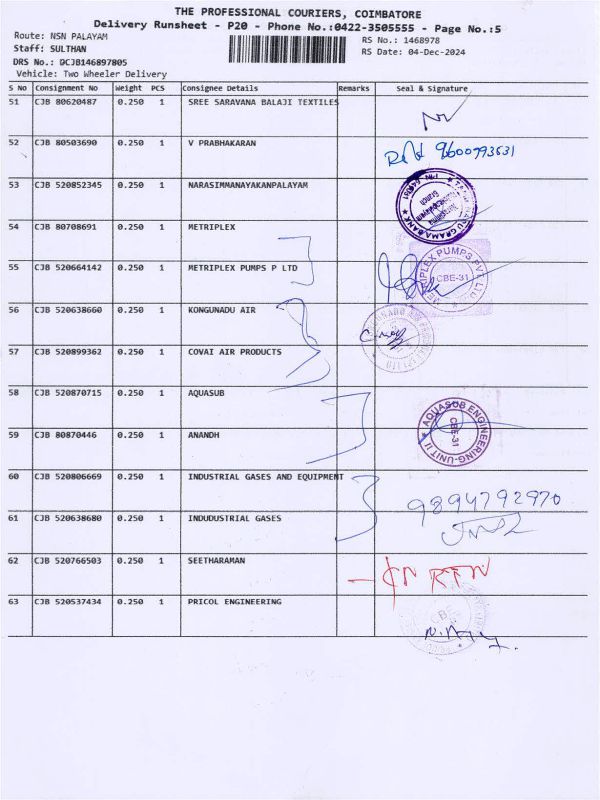 THE PROFESSIONAL COURIERS, COIMBATORE
Delivery Runsheet - P20 - Phone No.:0422-3505555 - Page No.:5
Route: NSN PALAYAM
RS No.: 1468978
Staff: SULTHAN
RS Date: 04-Dec-2024
DRS No.: DCJB146897805
Vehicle: Two Wheeler Delivery
S No Consignment No Weight PCS Consignee Details Remarks Seal & Signature
51 CJB 80620487 0.250 1 SREE SARAVANA BALAJI TEXTILES
52 CJB 80503690 0.250 1 V PRABHAKARAN 9600793631
53 CJB 520852345 0.250 1 NARASIMMANAYAKANPALAYAM
GRAMA BANK
54 CJB 80708691 0.250 1 METRIPLEX
55 CJB 520664142 0.250 1 METRIPLEX PUMPS P LTD
METRIPLEX PUMPS PVT LTD
CBE-31
56 CJB 520638660 0.250 1 KONGUNADU AIR
57 CJB 520899362 0.250 1 COVAI AIR PRODUCTS
58 CJB 520870715 0.250 1 AQUASUB
AQUASUB ENGINEERING-UNIT II
CBE-31
59 CJB 80870446 0.250 1 ANANDH
60 CJB 520806669 0.250 1 INDUSTRIAL GASES AND EQUIPMENT
9894792970
61 CJB 520638680 0.250 1 INDUDUSTRIAL GASES
62 CJB 520766503 0.250 1 SEETHARAMAN
63 CJB 520537434 0.250 1 PRICOL ENGINEERING
CBE